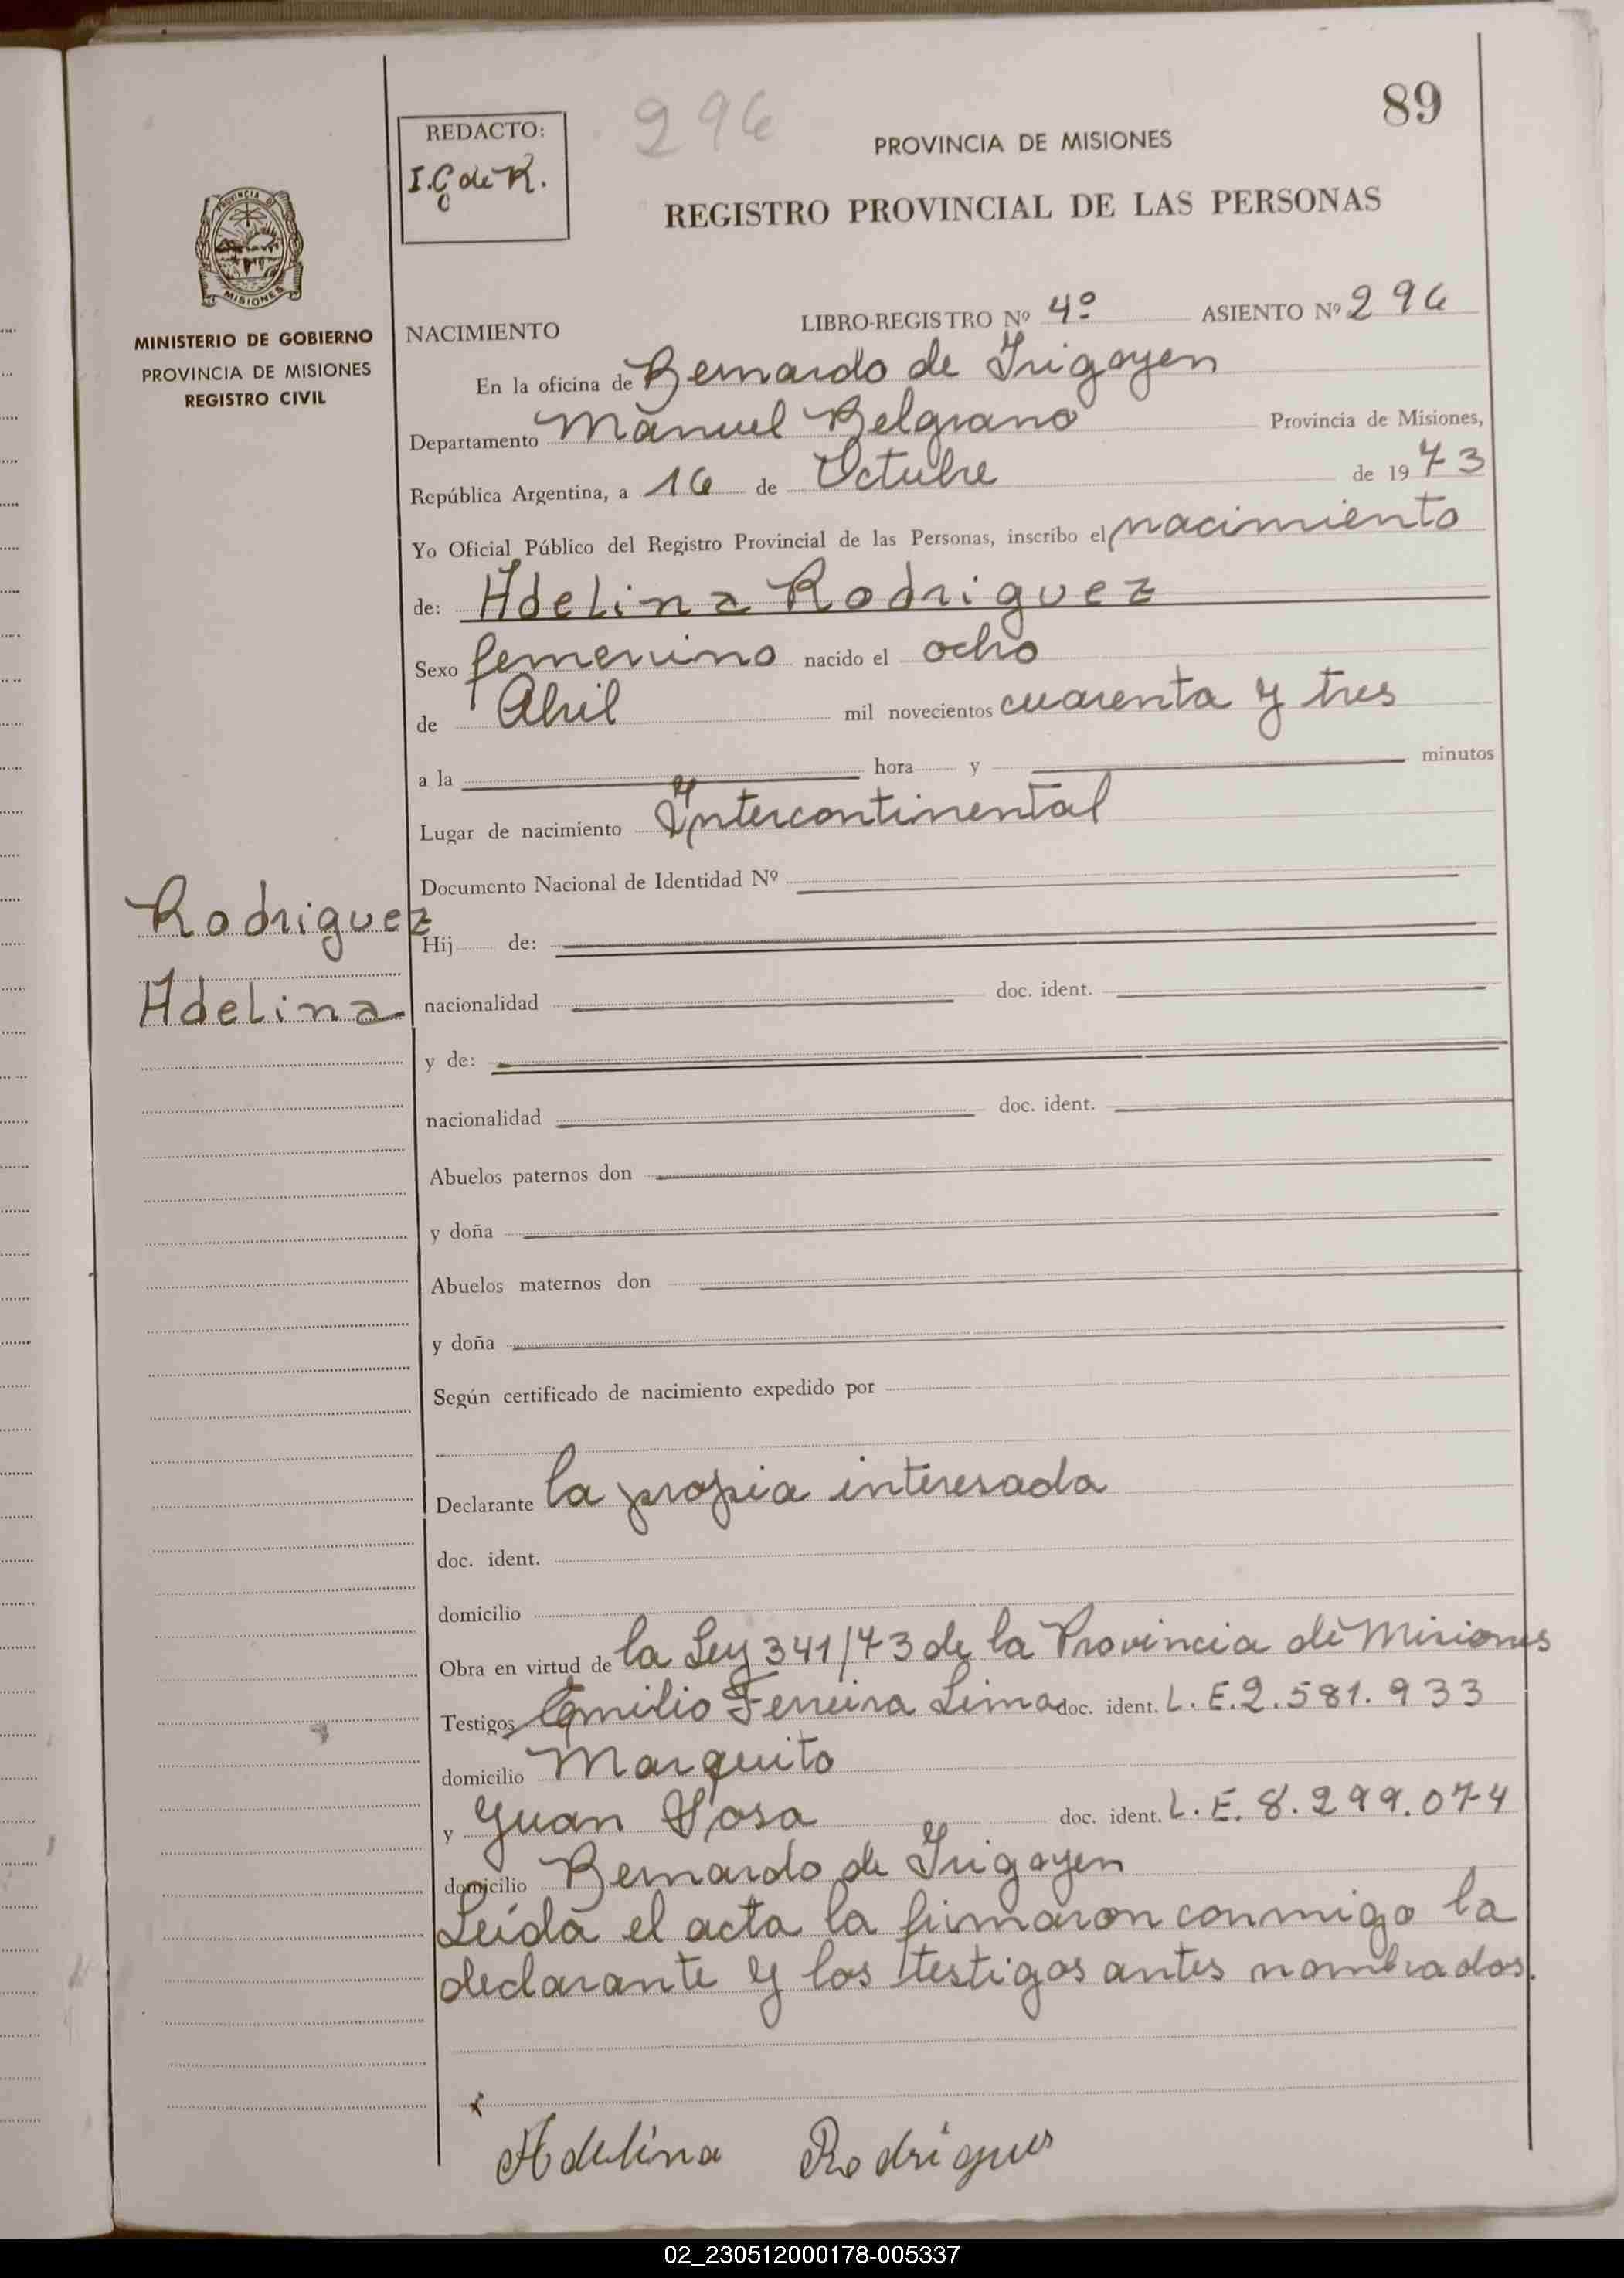 89
REDACTO:
I.G de R.
296
PROVINCIA DE MISIONES
REGISTRO PROVINCIAL DE LAS PERSONAS
PROVINCIA DE
MISIONES
MINISTERIO DE GOBIERNO
PROVINCIA DE MISIONES
REGISTRO CIVIL
NACIMIENTO LIBRO-REGISTRO Nº 4º ASIENTO Nº 296
En la oficina de Bernardo de Irigoyen
Departamento Manuel Belgrano Provincia de Misiones,
República Argentina, a 16 de Octubre de 1973
Yo Oficial Público del Registro Provincial de las Personas, inscribo el nacimiento
de: Adelina Rodriguez
Sexo femenino nacido el ocho
de Abril mil novecientos cuarenta y tres
a la hora y minutos
Lugar de nacimiento Intercontinental
Documento Nacional de Identidad Nº
Rodriguez
Adelina
Hij de:
nacionalidad doc. ident.
y de:
nacionalidad doc. ident.
Abuelos paternos don
y doña
Abuelos maternos don
y doña
Según certificado de nacimiento expedido por
Declarante la propia interesada
doc. ident.
domicilio
Obra en virtud de la Ley 341/73 de la Provincia de Misiones
Testigos Emilio Ferreira Lima doc. ident. L.E.2.581.933
domicilio Marquito
y Juan Sosa doc. ident. L.E. 8.299.074
domicilio Bernardo de Irigoyen
Leida el acta la firmaron conmigo la
declarante y los testigos antes nombrados.
x
Adelina Rodrigues
02_230512000178-005337